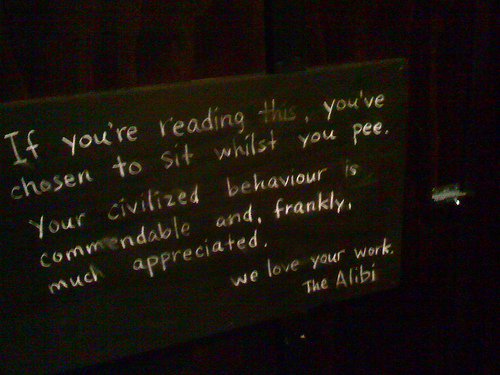 If you're reading this, you've
chosen to sit whilst you pee.
Your civilized behaviour is
commendable and, frankly,
much appreciated.
we love your work.
The Alibi